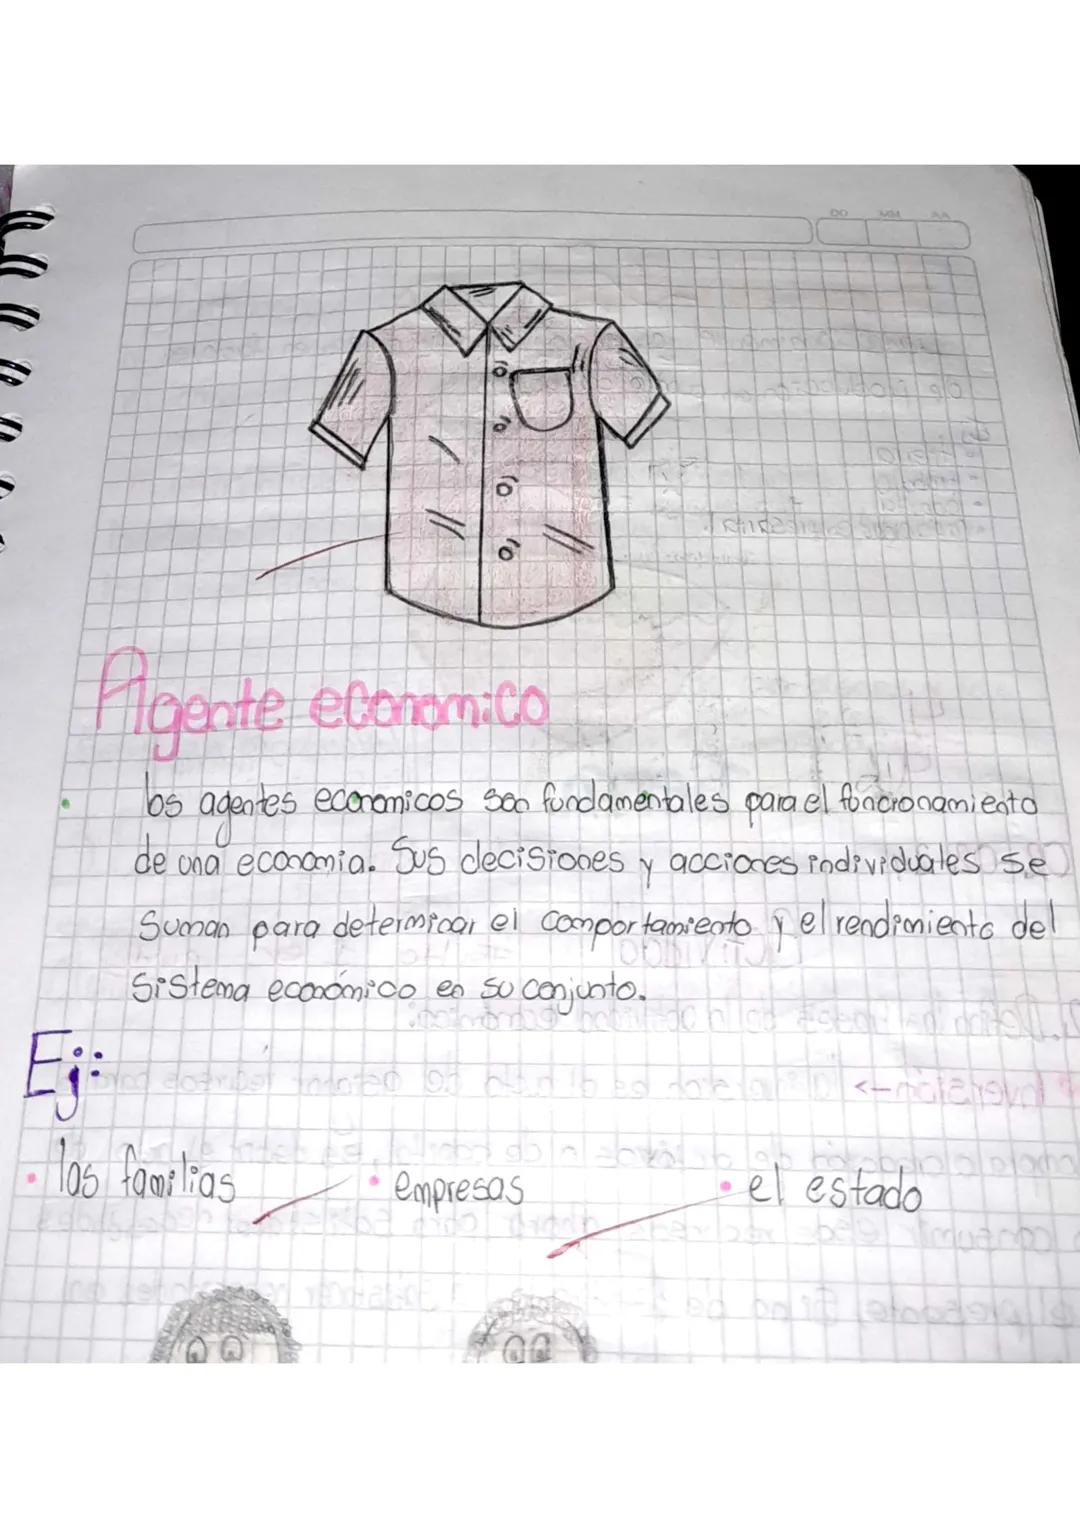 DD MM AA
Agente economico
los agentes economicos son fundamentales para el funcionamiento
de una economia. Sus decisiones y acciones individuales se
suman para determinar el comportamiento y el rendimiento del
sistema económico en su conjunto.
Ej:
• las familias • empresas • el estado